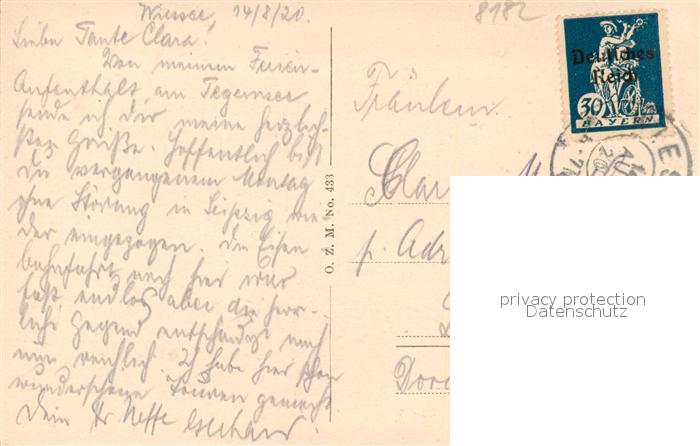 Wiessee, 14/8/20.
8182
Liebe Tante Clara!
Von meinem Ferien-
Aufenthalt am Tegernsee
sende ich dir meine herzlich-
sten Grüße. Hoffentlich bist
Du vergangenen Montag
ohne Störung in Leipzig wie
der eingezogen. Die Eisen
bahnfahrt nach hier war
fast endlos aber die herr-
liche Gegend entschädigt mich
nun reichlich. Ich habe hier schon
wunderschöne Touren gemacht
Dein Neffe
O. Z. M. No. 433
Deutsches
Reich
30
BAYERN
Fräulein
Clar
p. Adr
privacy protection
Datenschutz